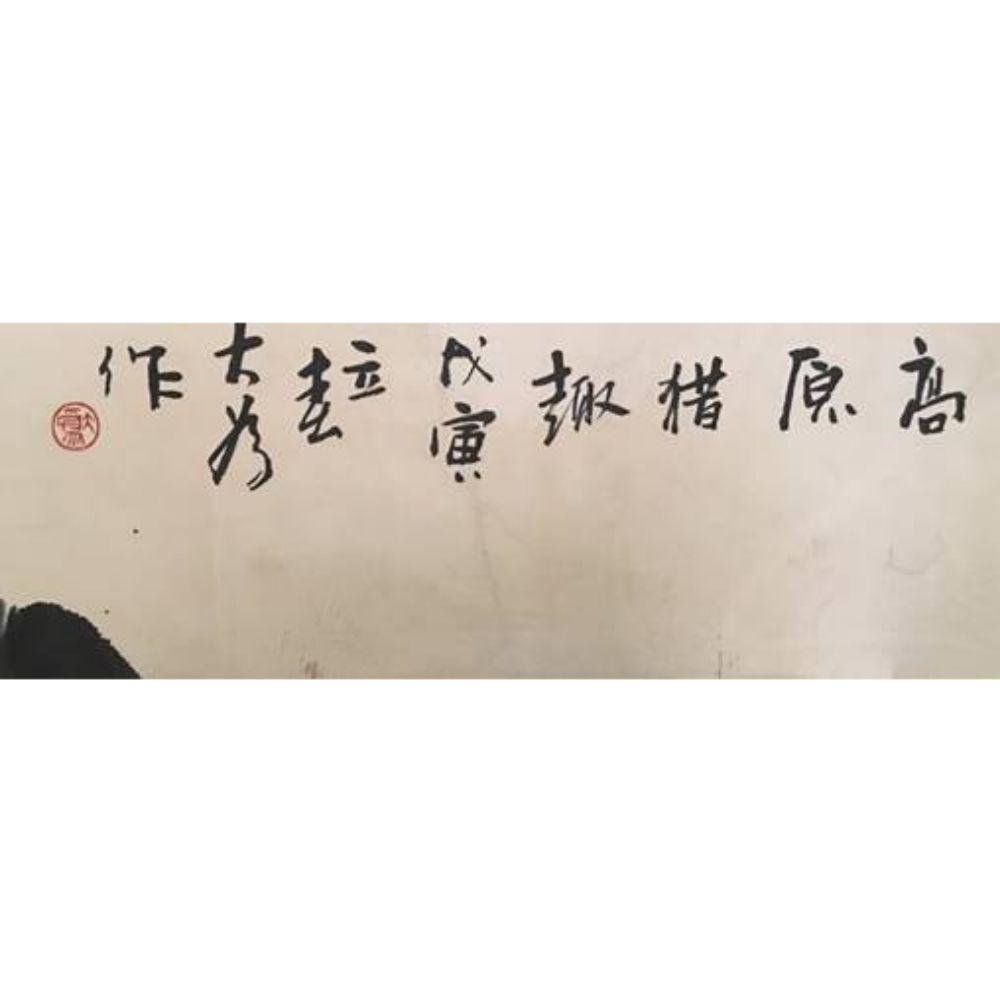 高
原
猎
趣
戊寅
立春
大为
作